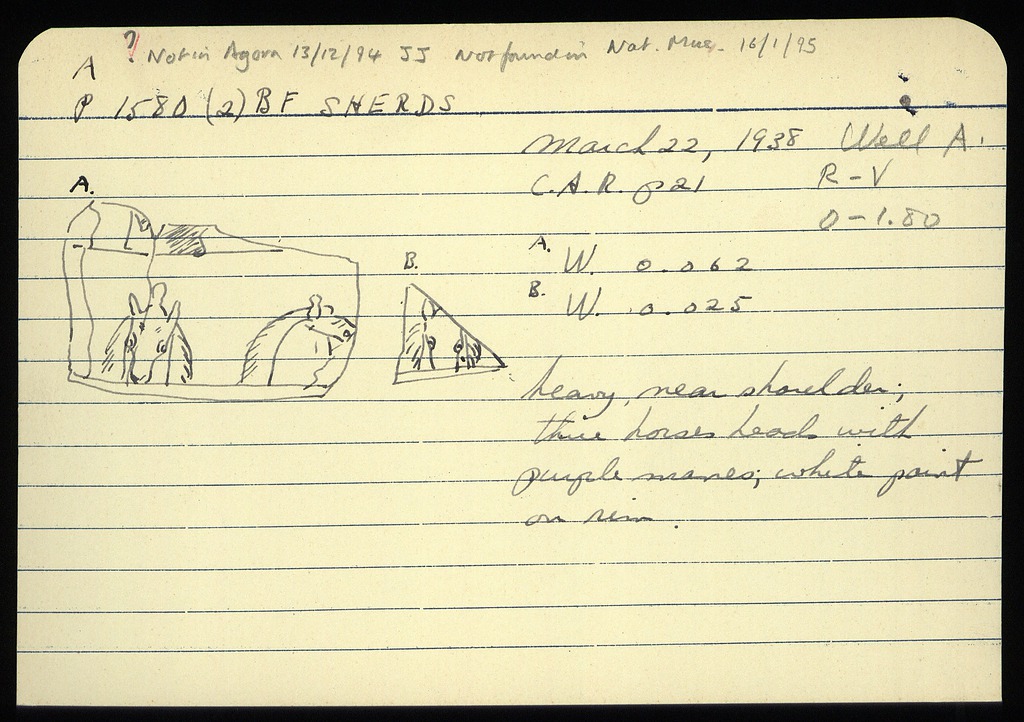 ? Not in Agora 13/12/94 JJ Not found in Nat. Mus. 16/1/95
A
P 1580 (2) BF SHERDS
March 22, 1938 Well A.
C.A.R. p 21 R-V
0-1.80
A.
A. W. 0.062
B.
B. W. 0.025
heavy, near shoulder;
three horses heads with
purple manes; white paint
on rim.